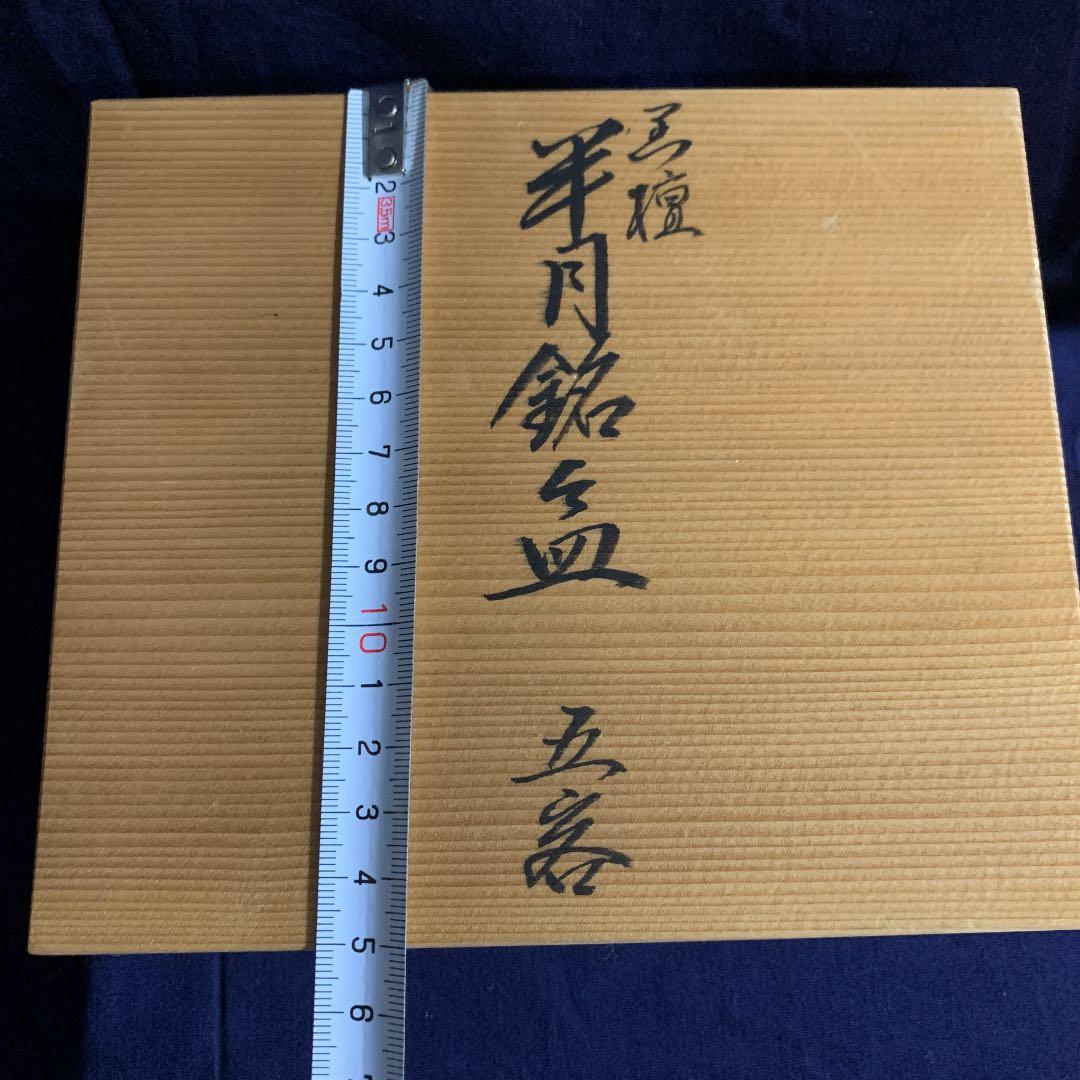 黒檀
半月銘々皿 五客
2
3.5m
3
4
5
6
7
8
9
10
1
2
3
4
5
6